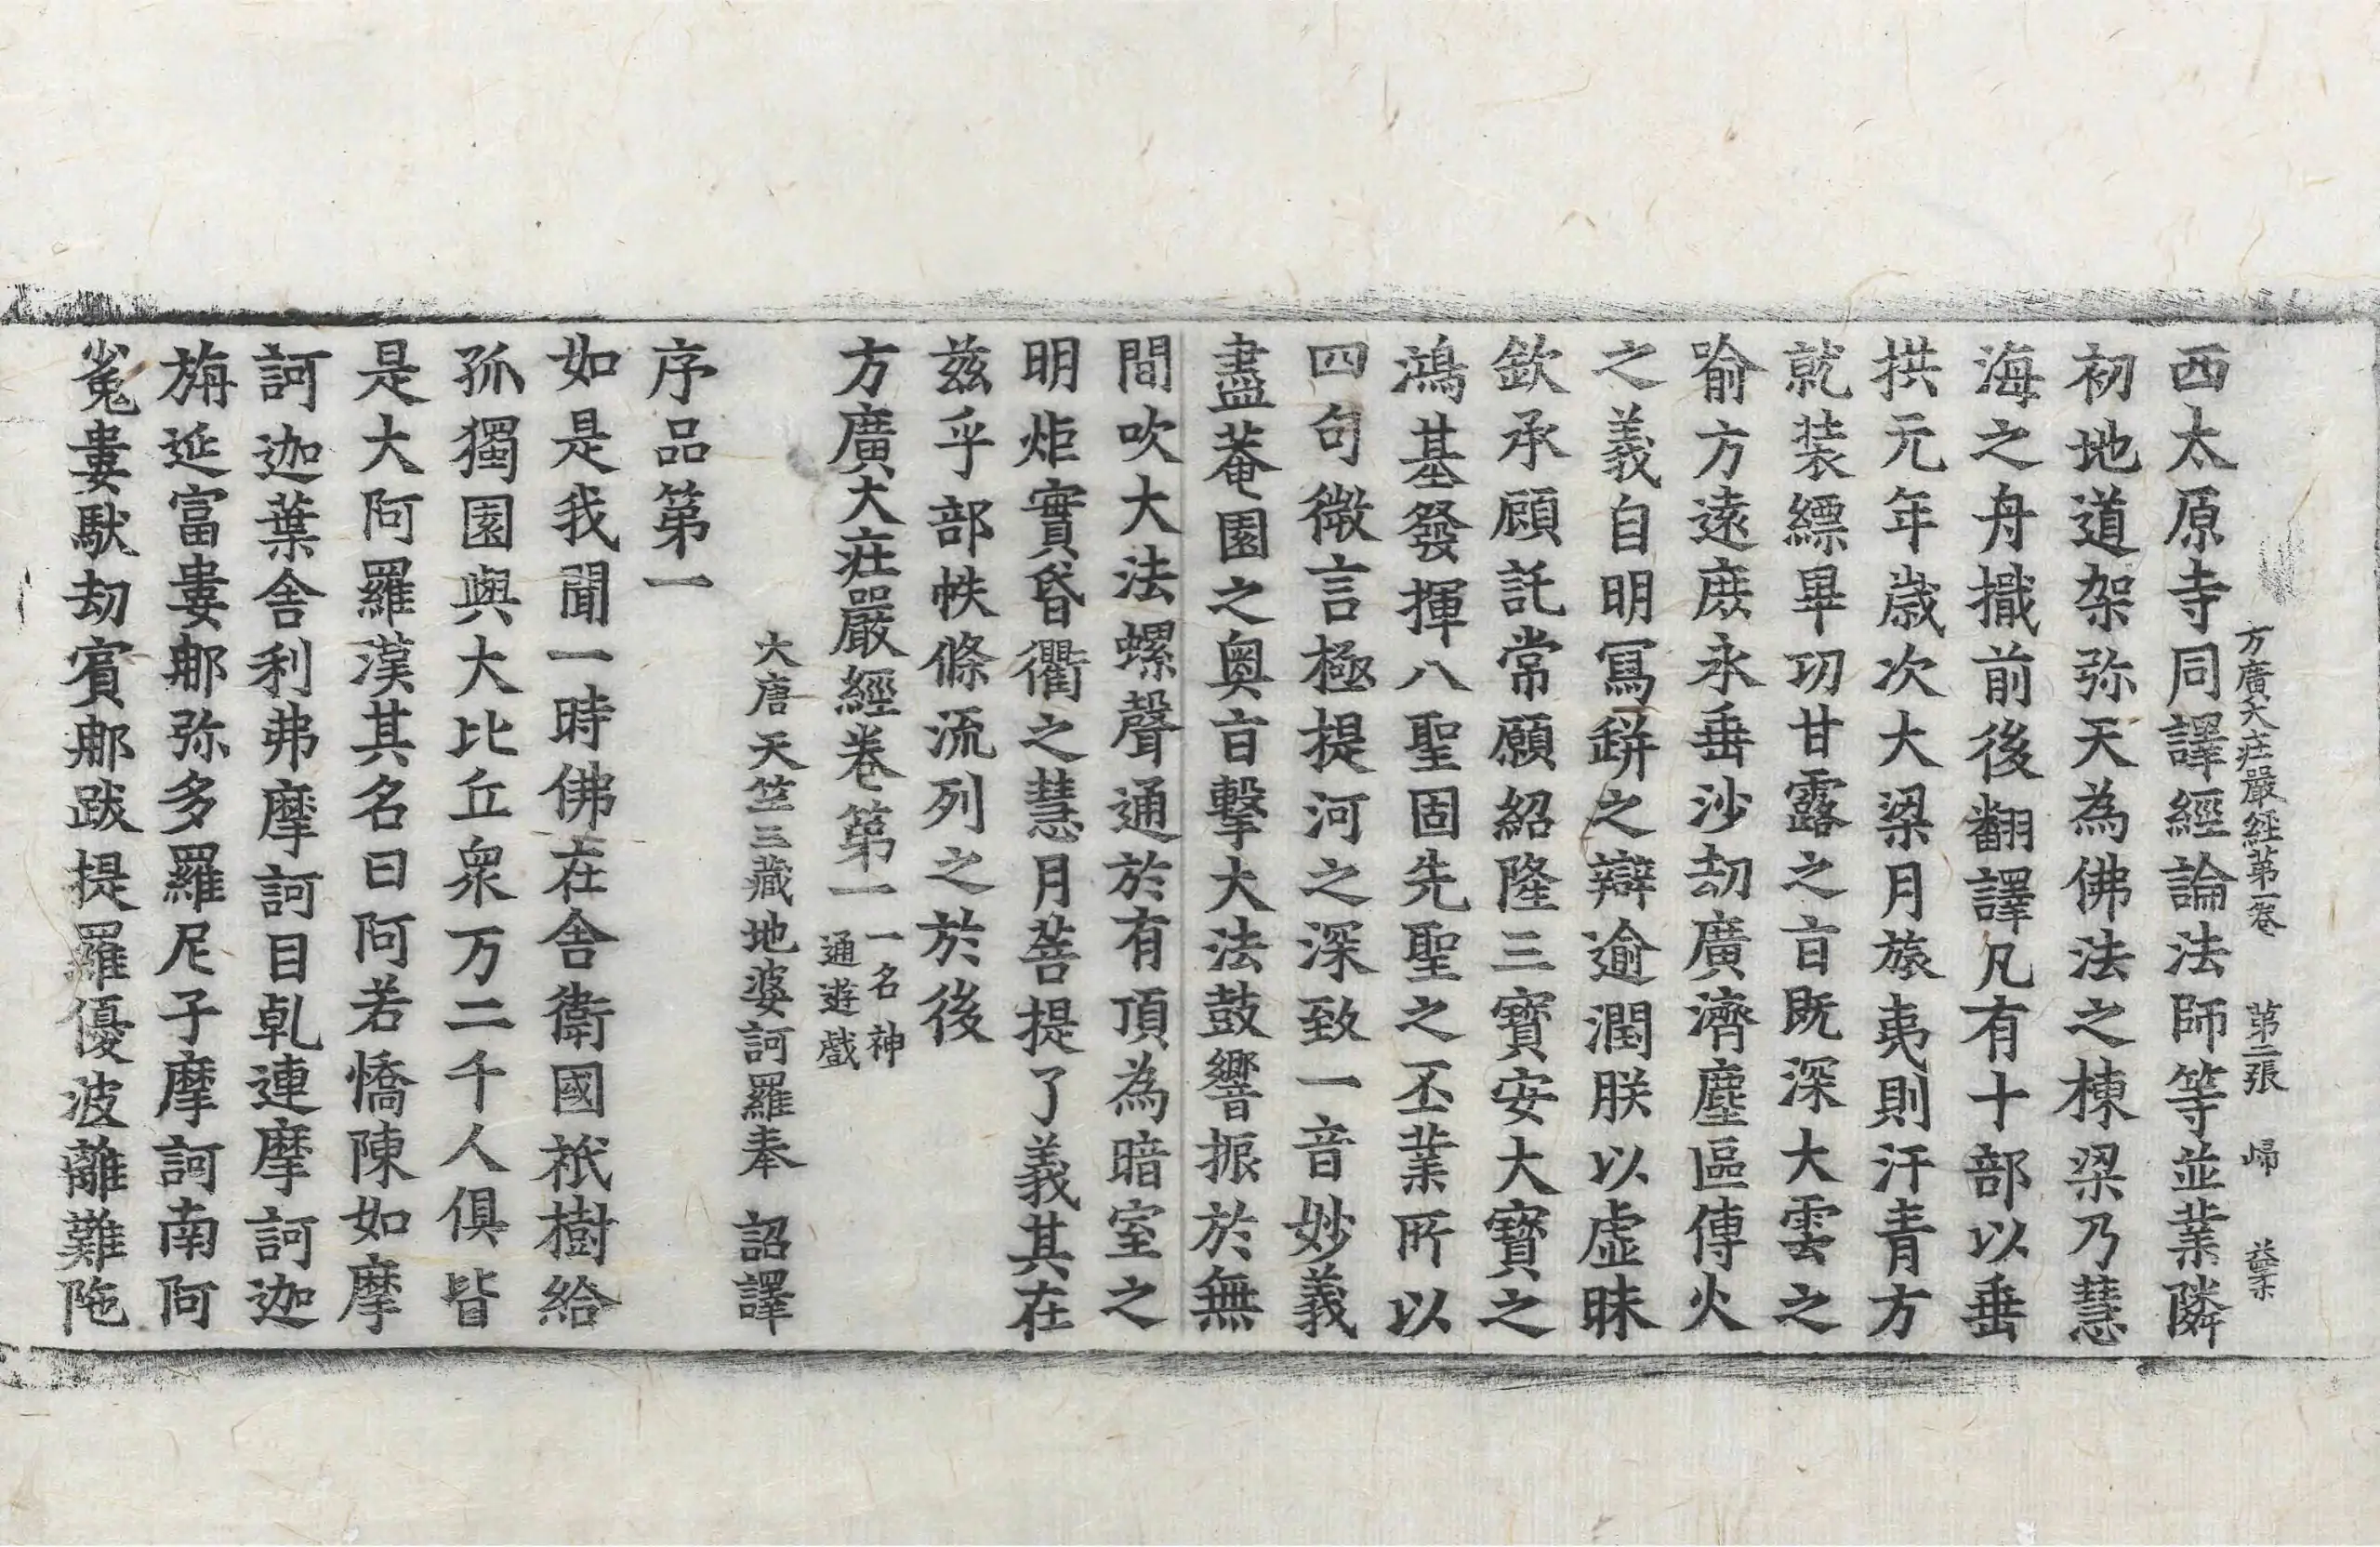 方廣大莊嚴經第一卷 第二張 歸 益柔
西太原寺同譯經論法師等並業隣
初地道架弥天為佛法之棟梁乃慧
海之舟檝前後翻譯凡有十部以垂
拱元年歲次大梁月旅夷則汗青方
就装縹畢功甘露之㫖既深大雲之
喻方遠庶永垂沙劫廣濟塵區傳火
之義自明寫缾之辯逾潤朕以虛昧
欽承顧託常願紹隆三寶安大寶之
鴻基發揮八聖固先聖之丕業所以
四句微言極提河之深致一音妙義
盡菴園之奧㫖擊大法鼓響振於無
間吹大法螺聲通於有頂為暗室之
明炬實昏衢之慧月菩提了義其在
茲乎部帙條流列之於後
方廣大莊嚴經卷第一 一名神通遊戲
大唐天竺三藏地婆訶羅奉 詔譯
序品第一
如是我聞一時佛在舍衛國祇樹給
孤獨園與大比丘衆万二千人俱皆
是大阿羅漢其名曰阿若憍陳如摩
訶迦葉舍利弗摩訶目乹連摩訶迦
旃延富婁那弥多羅尼子摩訶南阿
㝹婁馱劫賓那跋提羅優波離難陁